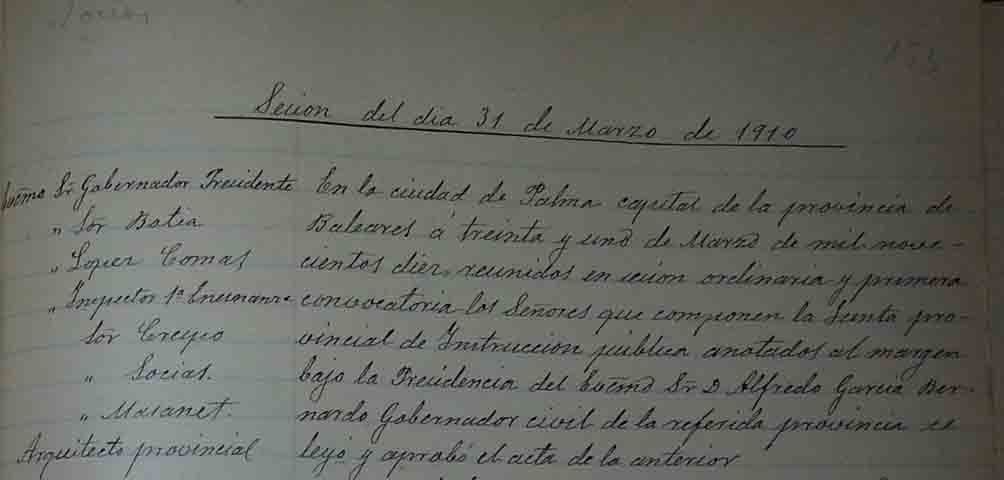 153
Secion del dia 31 de Marzo de 1910
Excmo Sr Gobernador Presidente
" Sor Batia
" Lopez Comas
" Inspector 1ª Ensenanza
Sor Crespo
" Socias.
" Masanet.
Arquitecto provincial
En la ciudad de Palma capital de la provincia de
Baleares á treinta y uno de Marzo de mil nove-
cientos diez, reunidos en secion ordinaria y primera
convocatoria los Señores que componen la Junta pro-
vincial de Instruccion pública anotados al margen
bajo la Presidencia del Excmo Sr D Alfredo Garcia Ber-
nardo Gobernador civil de la referida provincia se
leyó y aprobó el acta de la anterior